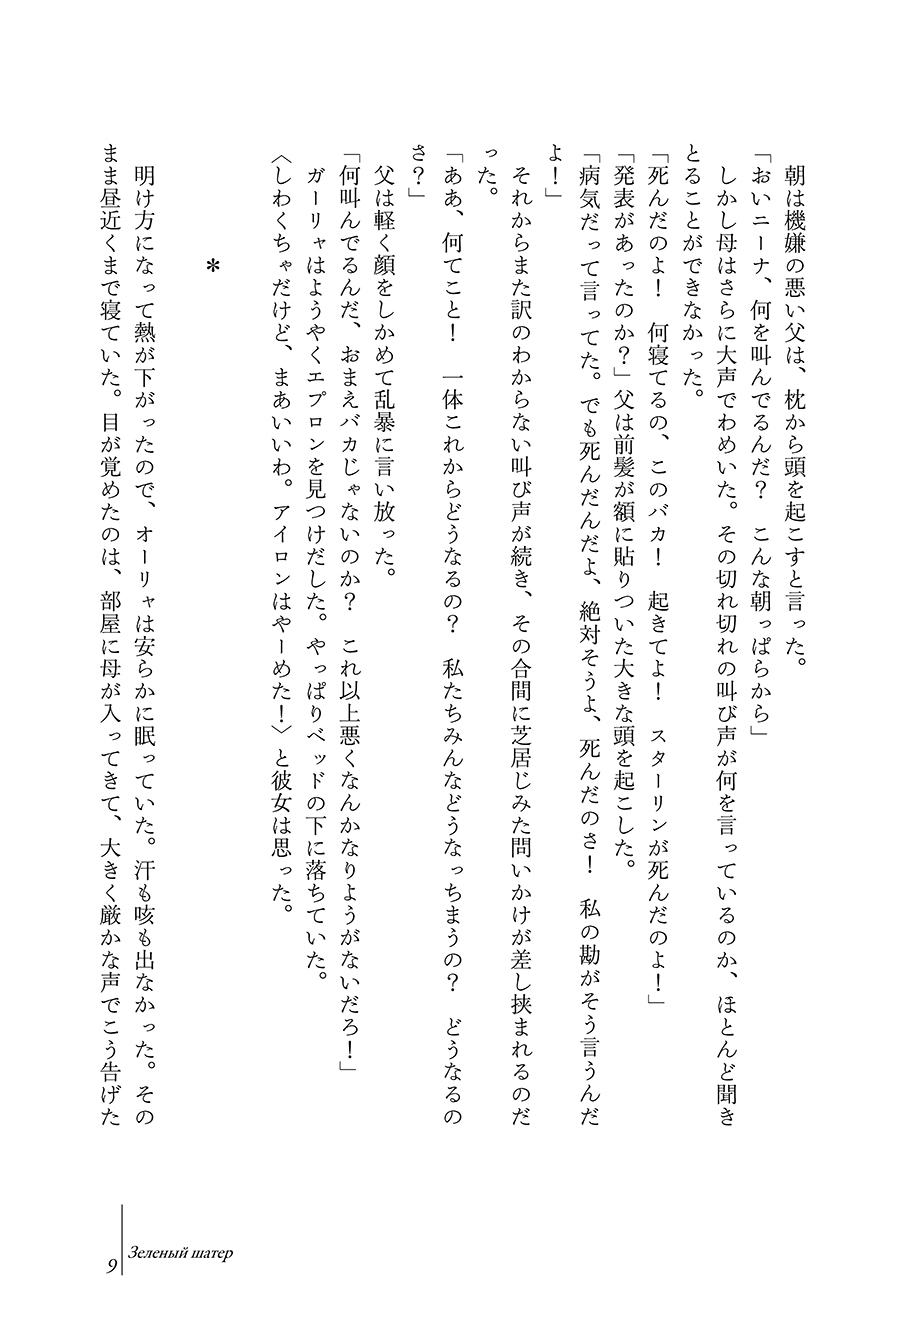 朝は機嫌の悪い父は、枕から頭を起こすと言った。
「おいニーナ、何を叫んでるんだ？　こんな朝っぱらから」
　しかし母はさらに大声でわめいた。その切れ切れの叫び声が何を言っているのか、ほとんど聞き
とることができなかった。
「死んだのよ！　何寝てるの、このバカ！　起きてよ！　スターリンが死んだのよ！」
「発表があったのか？」父は前髪が額に貼りついた大きな頭を起こした。
「病気だって言ってた。でも死んだんだよ、絶対そうよ、死んだのさ！　私の勘がそう言うんだ
よ！」
　それからまた訳のわからない叫び声が続き、その合間に芝居じみた問いかけが差し挟まれるのだ
った。
「ああ、何てこと！　一体これからどうなるの？　私たちみんなどうなっちまうの？　どうなるの
さ？」
　父は軽く顔をしかめて乱暴に言い放った。
「何叫んでるんだ、おまえバカじゃないのか？　これ以上悪くなんかなりようがないだろ！」
　ガーリャはようやくエプロンを見つけだした。やっぱりベッドの下に落ちていた。
〈しわくちゃだけど、まあいいわ。アイロンはやーめた！〉と彼女は思った。
＊
　明け方になって熱が下がったので、オーリャは安らかに眠っていた。汗も咳も出なかった。その
まま昼近くまで寝ていた。目が覚めたのは、部屋に母が入ってきて、大きく厳かな声でこう告げた
9
Зеленый шатер